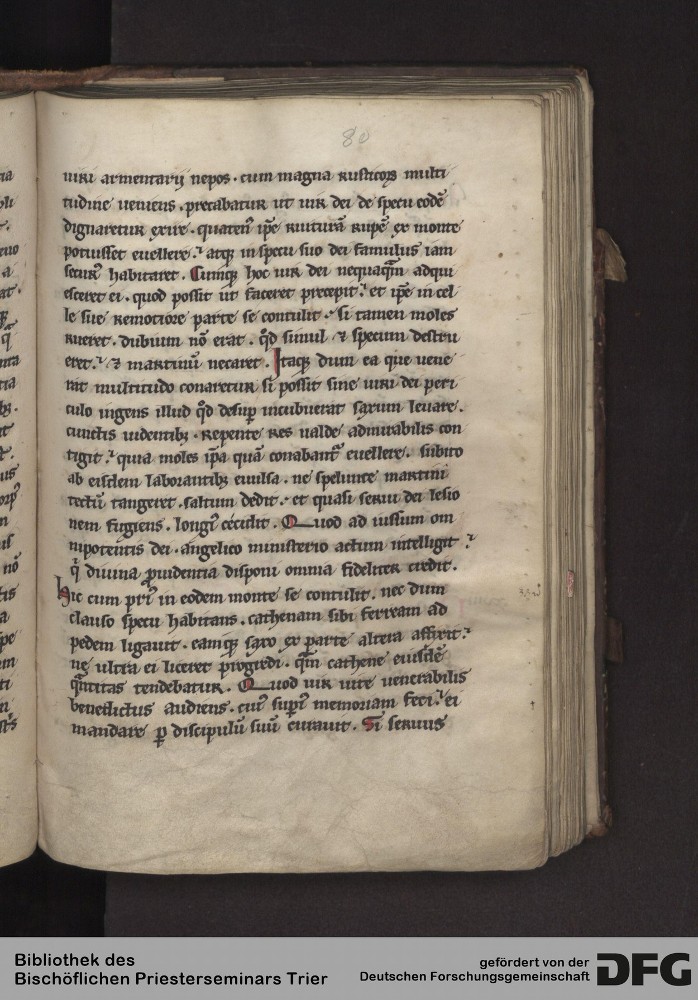 80
uiri armentarij nepos. cum magna rusticoꝝ multi
tudine ueniens. precabatur ut uir dei de specu eodē
dignaretur exire. quaten᷒ ip̄e ruiturā rupē ex monte
potuisset euellere. atqꝫ in specu suo dei famulus iam
secur᷒ habitaret. Cumqꝫ hoc uir dei nequaq̄m adqui
esceret ei. quod possit ut faceret precepit. et ip̄e in cel
le sue remotiore parte se contulit. si tamen moles
rueret. dubium nō erat. qd̄ simul ⁊ specum destru
eret. ⁊ martinū necaret. Itaqꝫ dum ea que uene
rat multitudo conaretur si possit sine uiri dei peri
culo ingens illud qd̄ desup̄ incubuerat saxum leuare.
cunctis uidentibꝫ. repente res ualde admirabilis con
tigit. quia moles ip̄a quā conabant᷑ euellere. subito
ab eisdem laborantibꝫ euulsa. ne spelunce martini
tectū tangeret. saltum dedit. et quasi serui dei lesio
nem fugiens. longi᷒ cecidit. Quod ad iussum om
nipotentis dei. angelico ministerio actum intelligit.
q̇ diuina ꝓuidentia disponi omnia fideliter credit.
hic cum pri᷒ in eodem monte se contulit. nec dum
clauso specu habitans. cathenam sibi ferream ad
pedem ligauit. eamqꝫ saxo ex parte altera affixit.
ne ultra ei liceret progredi. q̄m cathene eiusdē
q̄ntitas tendebatur. Quod uir uite uenerabilis
benedictus audiens. cui᷒ supi᷒ memoriam feci. ei
mandare ꝑ discipulū suū curauit. Si seruus
Bibliothek des
Bischöflichen Priesterseminars Trier
gefördert von der
Deutschen Forschungsgemeinschaft
DFG